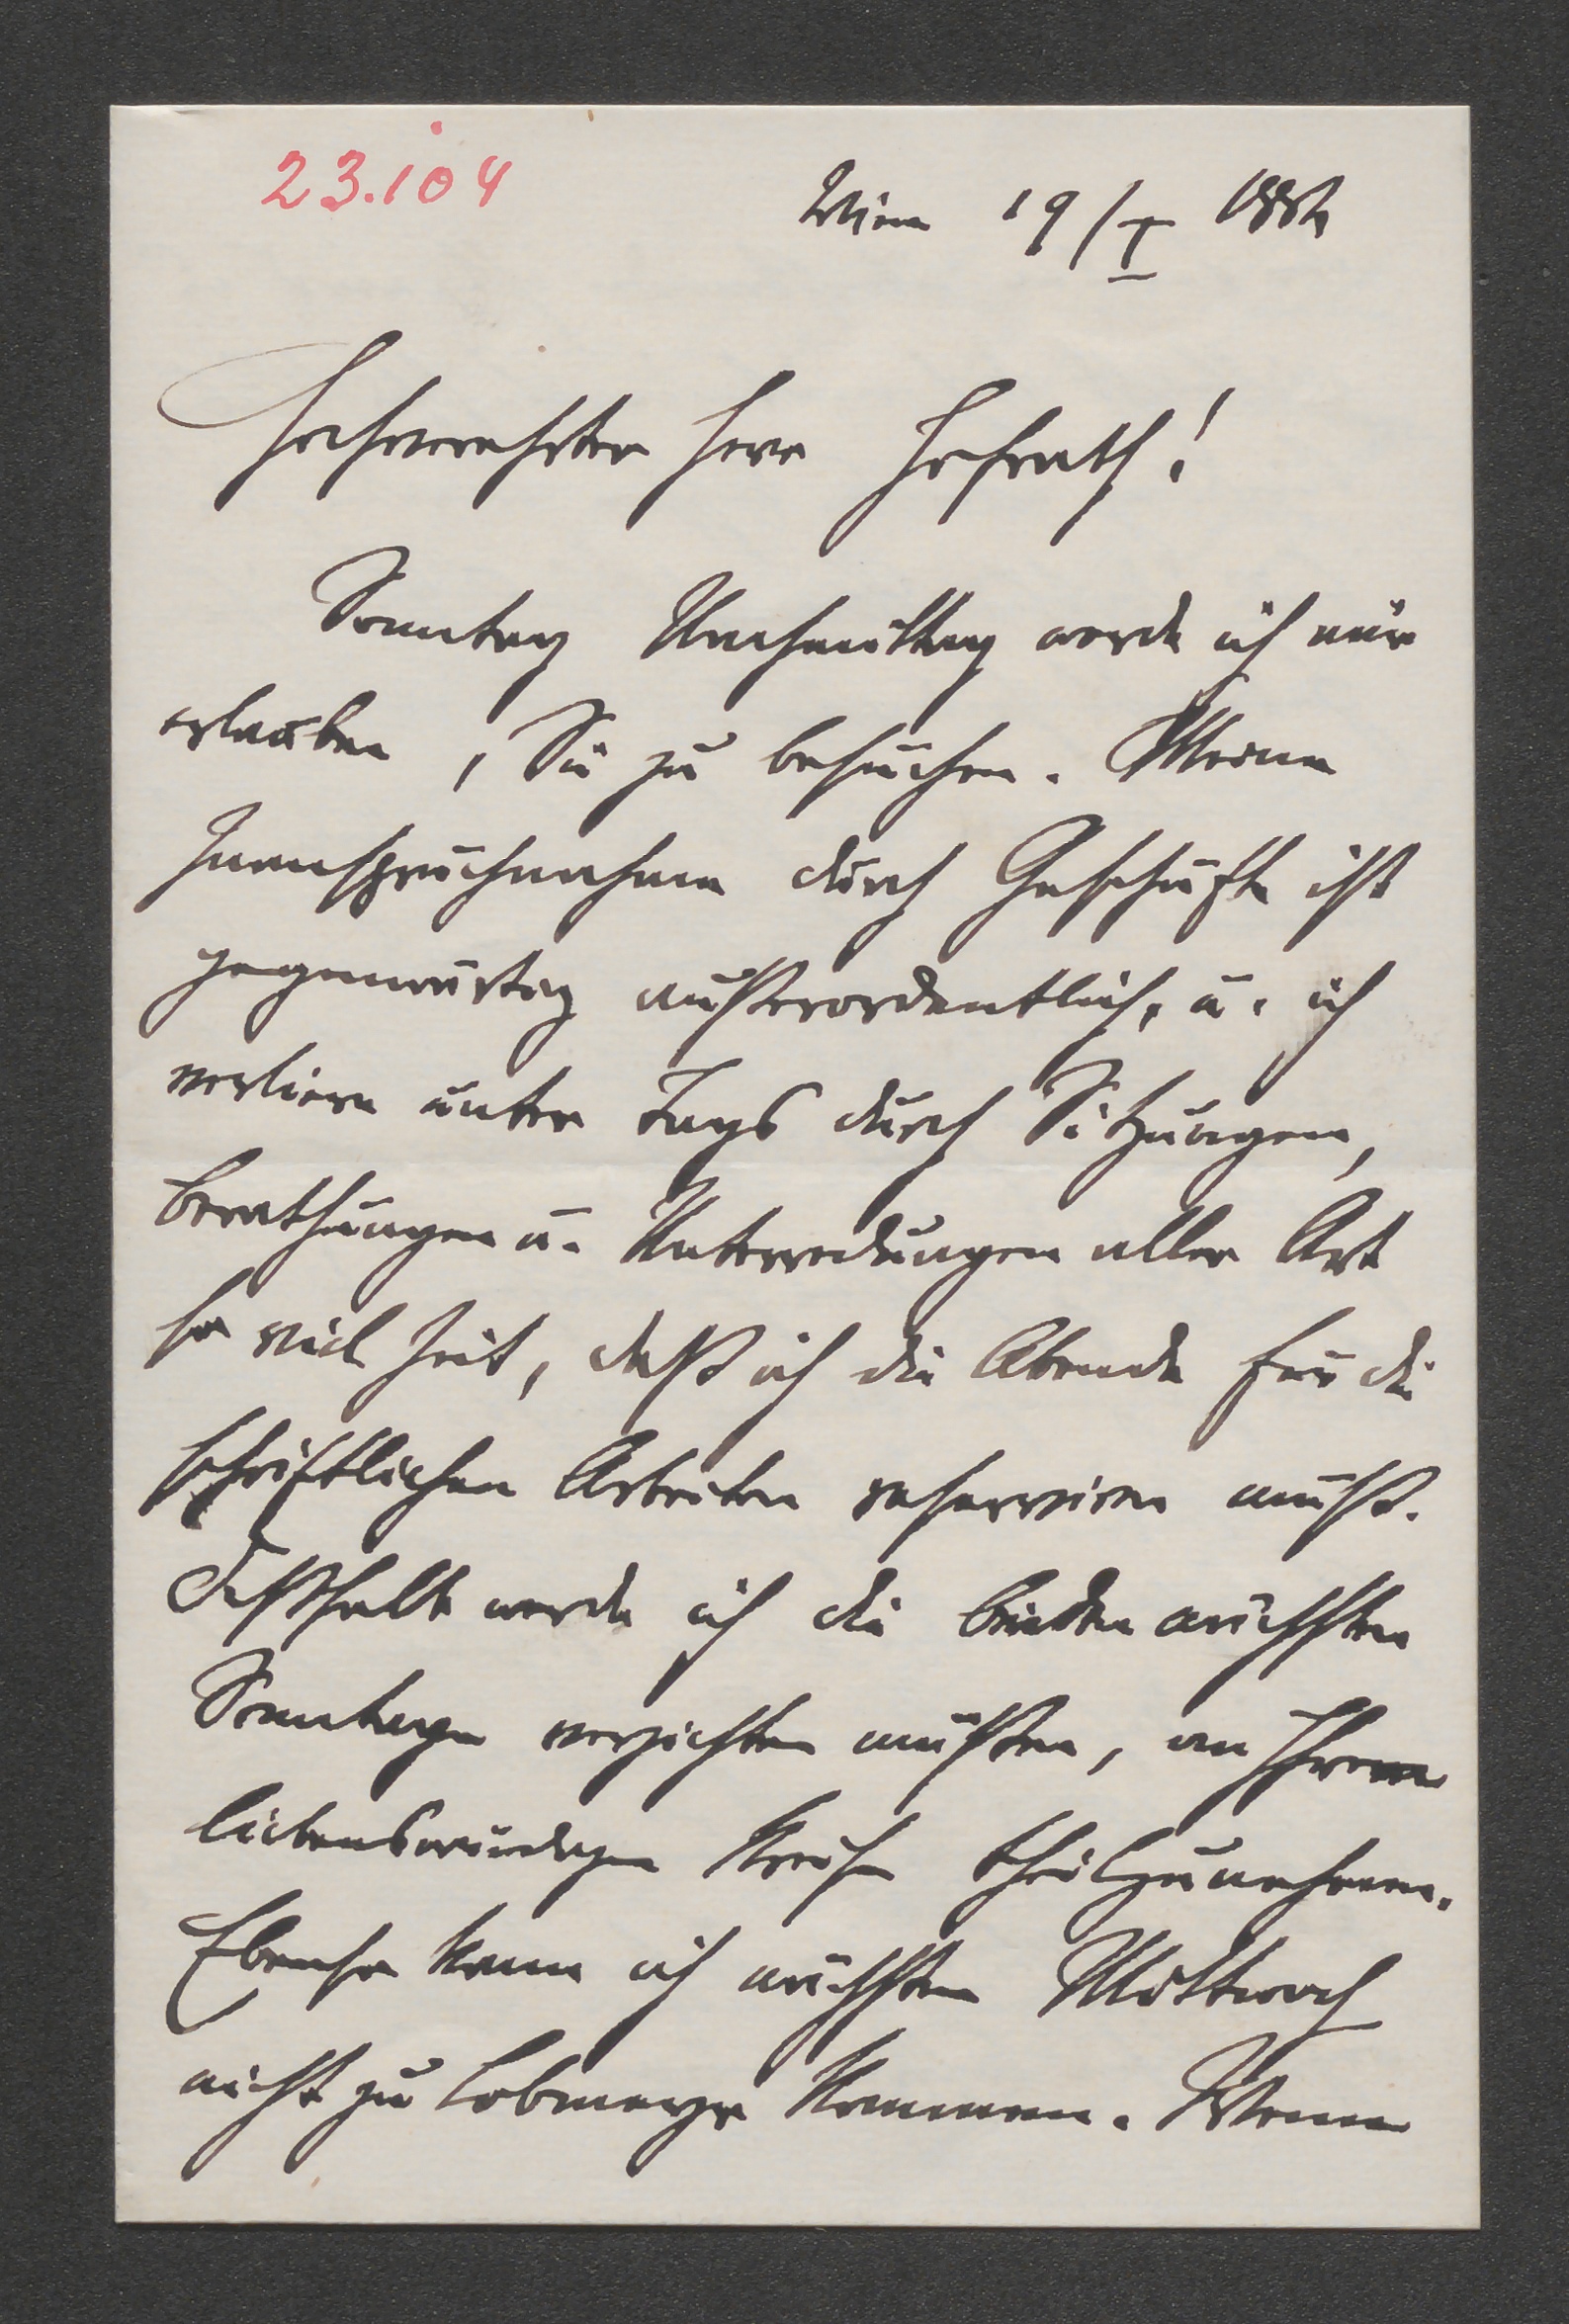 23.104
Wien 19/I 1884
Hochverehrter Herr Hofrath!
Sonntag Nachmittag werde ich mir
erlauben, Sie zu besuchen. Meine
Inanspruchnahme durch Geschäfte ist
gegenwärtig außerordentlich, u. ich
verliere unter Tags durch Sitzungen,
Berathungen u. Unterredungen aller Art
so viel Zeit, daß ich die Abende für die
schriftlichen Arbeiten reserviren muß.
Deßhalb werde ich die beiden nächsten
Sonntage verzichten müßen, an Ihrem
liebenswürdigen Kreise theilzunehmen.
Ebenso kann ich nächsten Mittwoch
nicht zu Lobmeyr kommen. Wenn